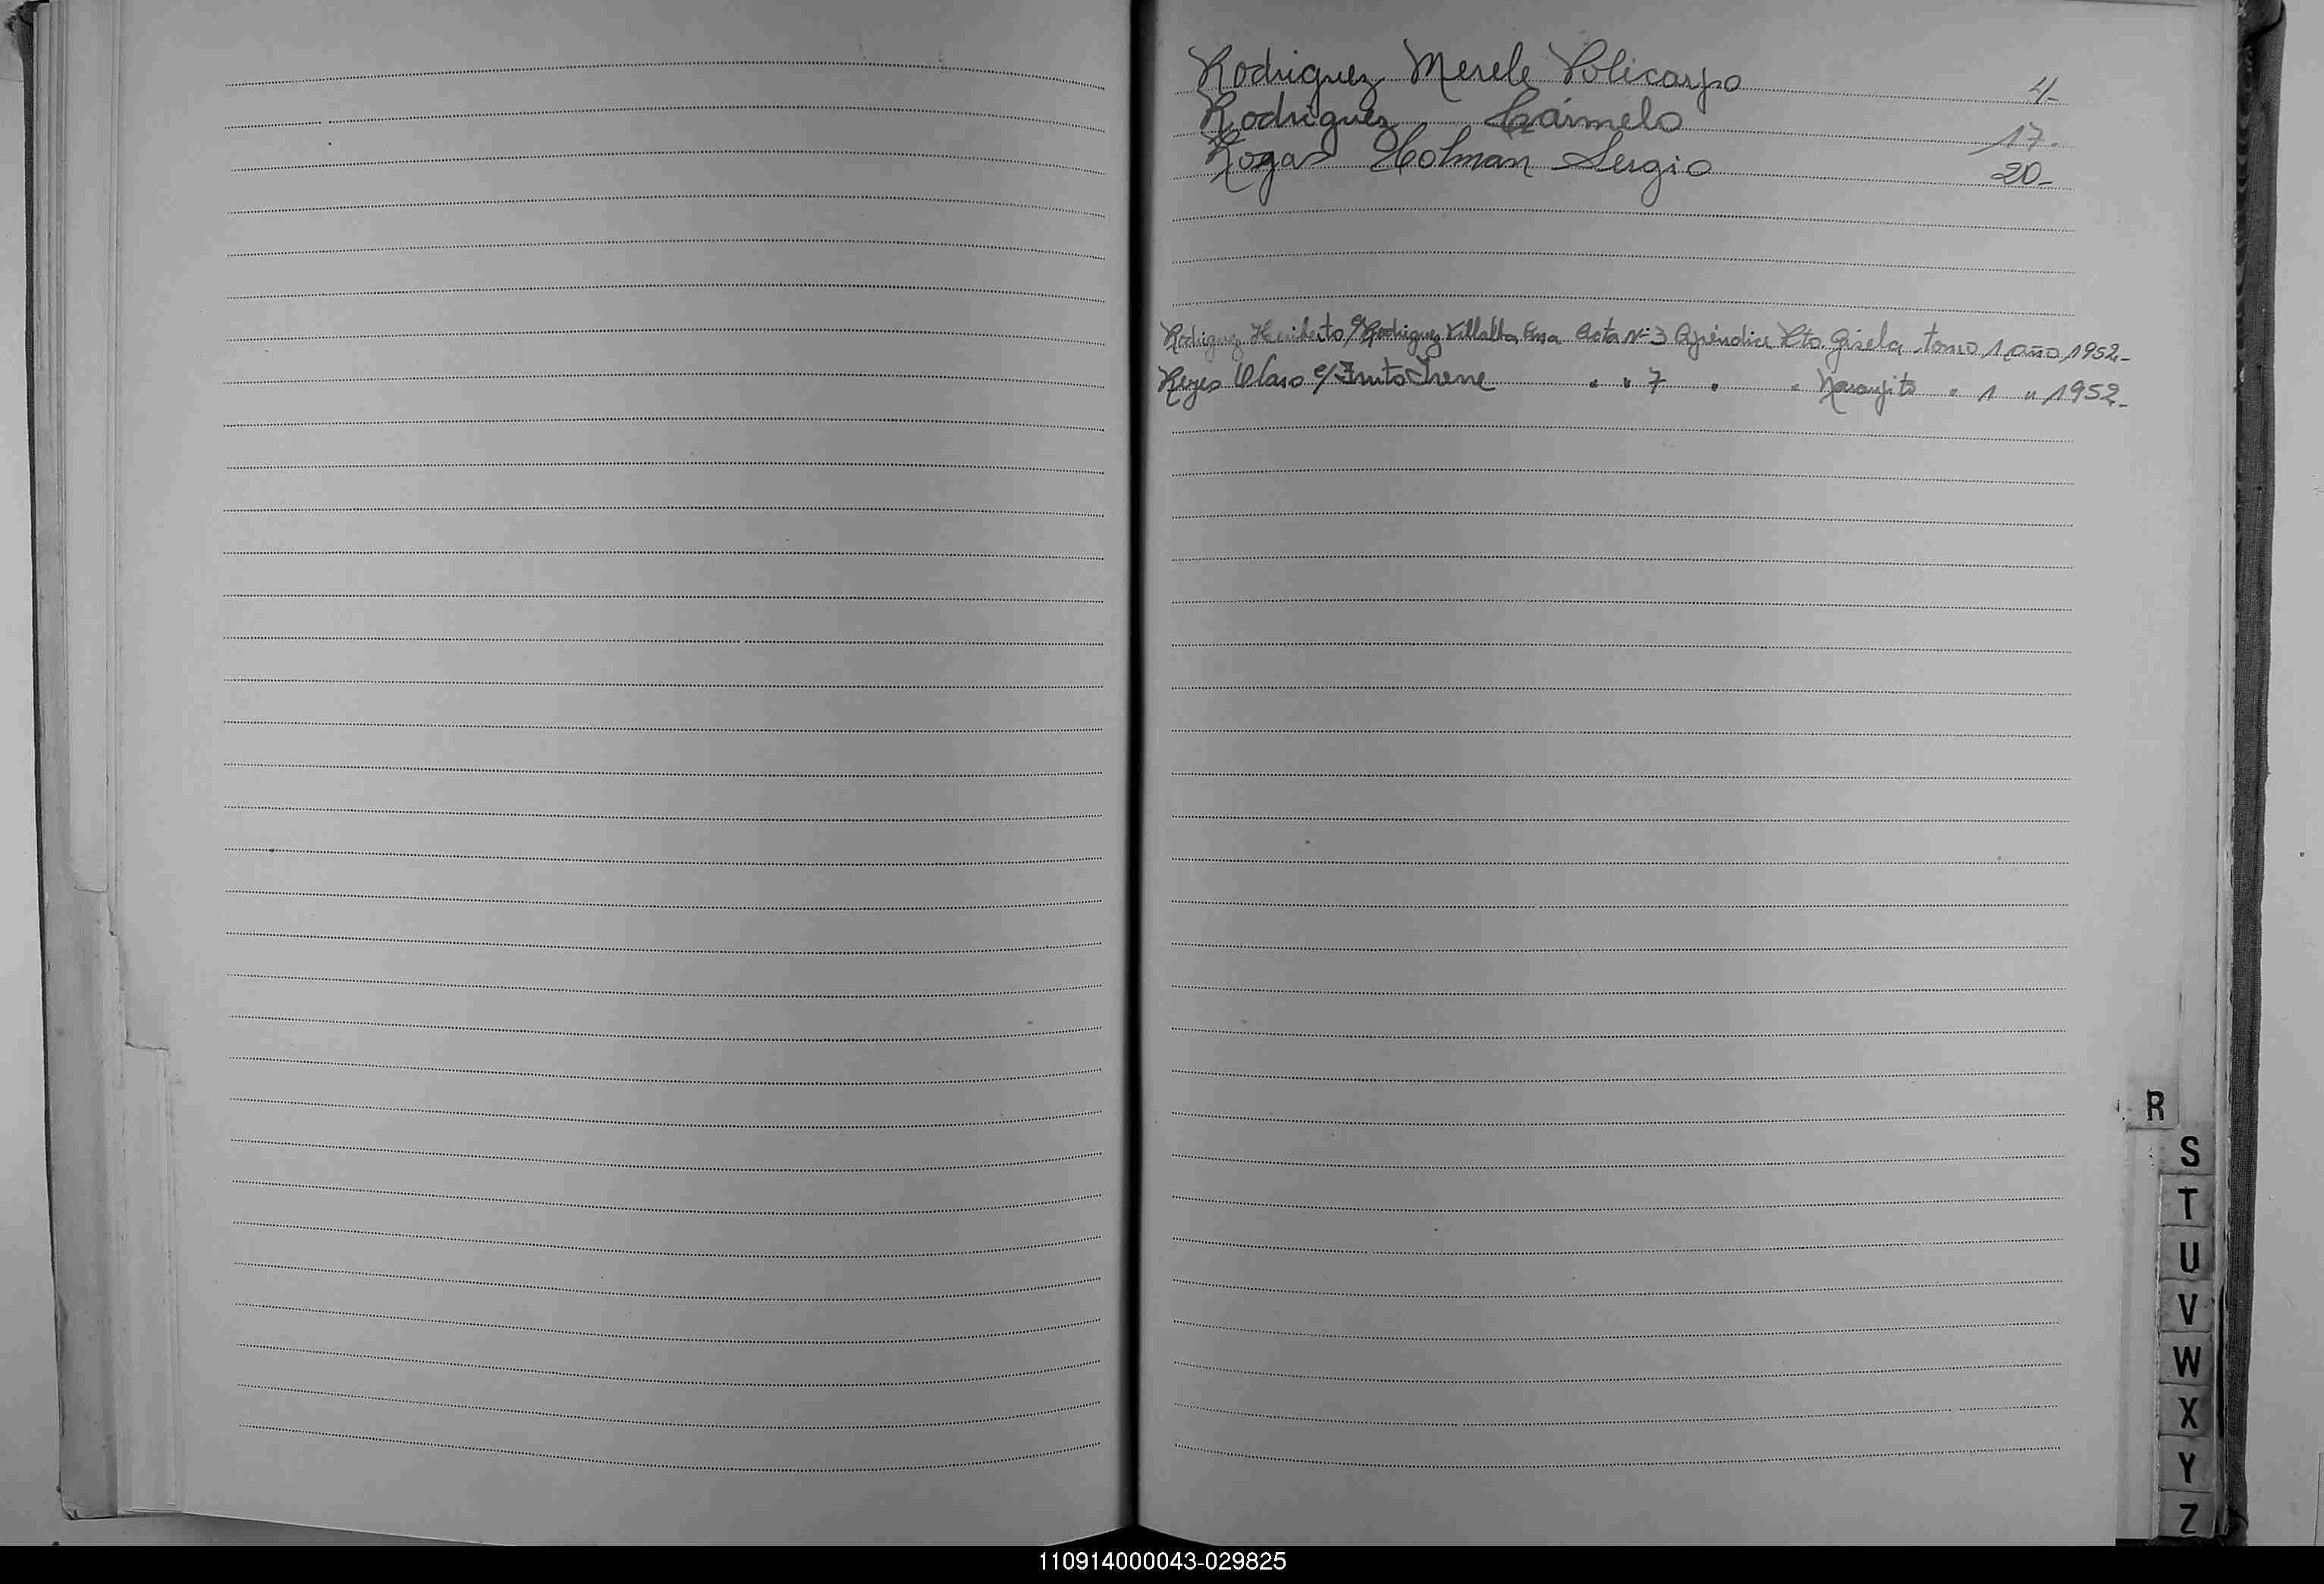 Rodriguez Merele Policarpo 4-
Rodriguez Cármelo 17-
Rogas Holman Sergio 20-
Rodriguez Heriberto c/ Rodriguez Villalba Ana Acta Nº 3 Apéndice Pto. Gisela, tomo 1, año 1952.-
Reyes Olaso c/ Fruto Irene " " 7 " " Naranjito " 1 " 1952.-
R
S
T
U
V
W
X
Y
Z
110914000043-029825